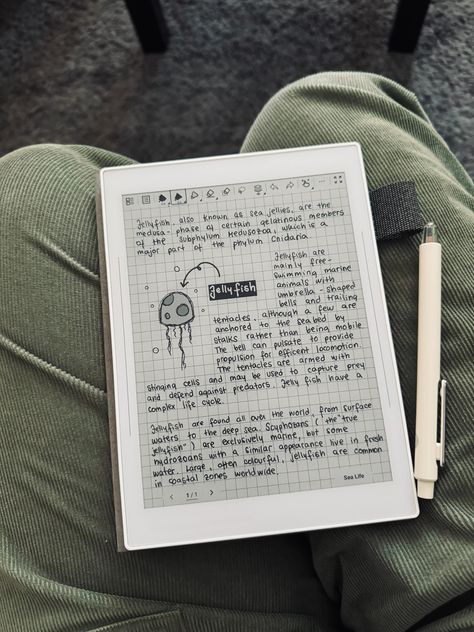 Jellyfish, also known as sea jellies, are the
medusa-phase of certain gelatinous members
of the subphylum Medusozoa, which is a
major part of the phylum Cnidaria.
Jellyfish
Jellyfish are
mainly free-
swimming marine
animals with
umbrella-shaped
bells and trailing
tentacles, although a few are
anchored to the seabed by
stalks rather than being mobile.
The bell can pulsate to provide
propulsion for efficent locomotion.
The tentacles are armed with
stinging cells and may be used to capture prey
and defend against predators. Jelly fish have a
complex life cycle.
Jellyfish are found all over the world, from surface
waters to the deep sea. Scyphozoans ( the "true
jellyfish") are exclusively marine, but some
hydrozoans with a similar appearance live in fresh
water. Large, often colourful, jellyfish are common
in coastal zones worldwide.
< 1/1 >
Sea Life